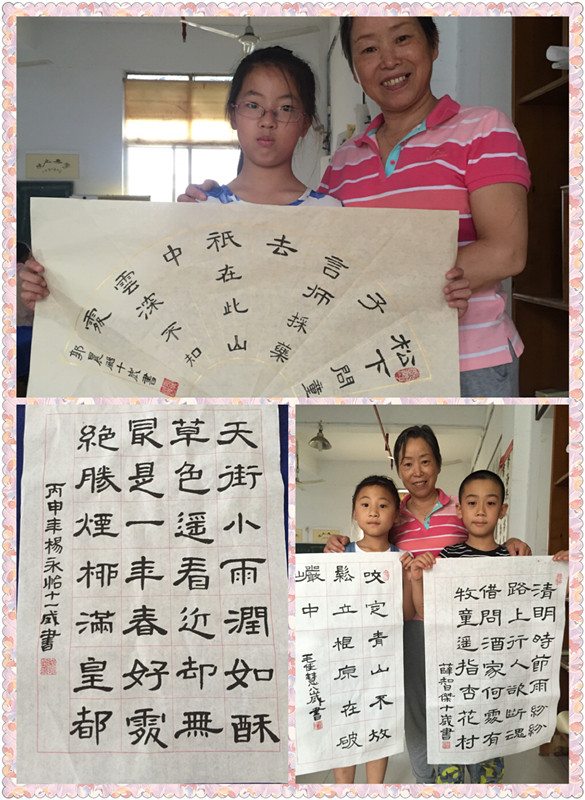 松下問童
子
言師採藥
去
祇在此山
中
雲深不知
處
郭晨十歲書
天街小雨潤如酥
草色遥看近却無
最是一年春好處
絶勝煙柳滿皇都
丙申年楊永怡十一歲書
咬定青山不放
鬆立根原在破
巖中
慧歲書
清明時節雨紛紛
路上行人欲斷魂
借問酒家何處有
牧童遥指杏花村
薛智傑十歲書